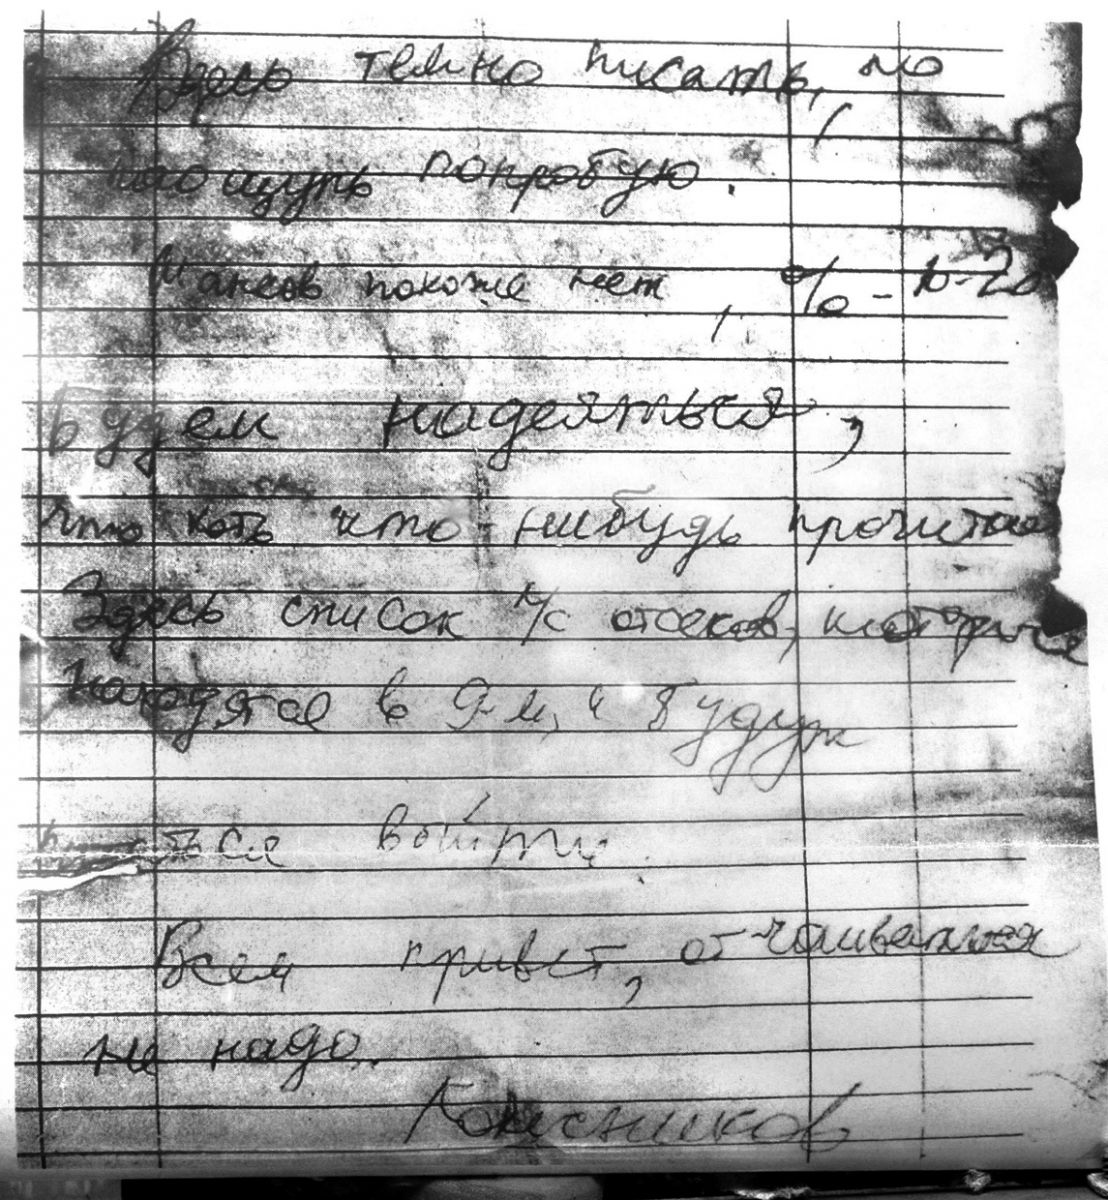 Здесь темно писать, но
наощупь попробую.
Шансов похоже нет, % - 10-20
Будем надеяться,
что хоть кто-нибудь прочитае
Здесь список л/с отсеков, которые
находятся в 9-м и будут
ться выйти.
Всем привет, отчаиваться
не надо.
Колесников